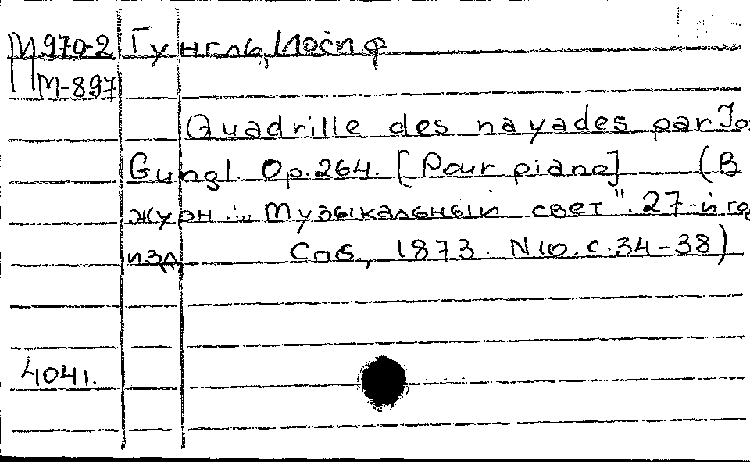 М970-2 Гунгль, Иосиф
М-897
Quadrille des nayades par Jo
Gungl. Op. 264. [Pour piano] (В
журн.: „Музыкальный свет". 27-й го
изд. Спб, 1873. N10. с. 34-38)
4041.